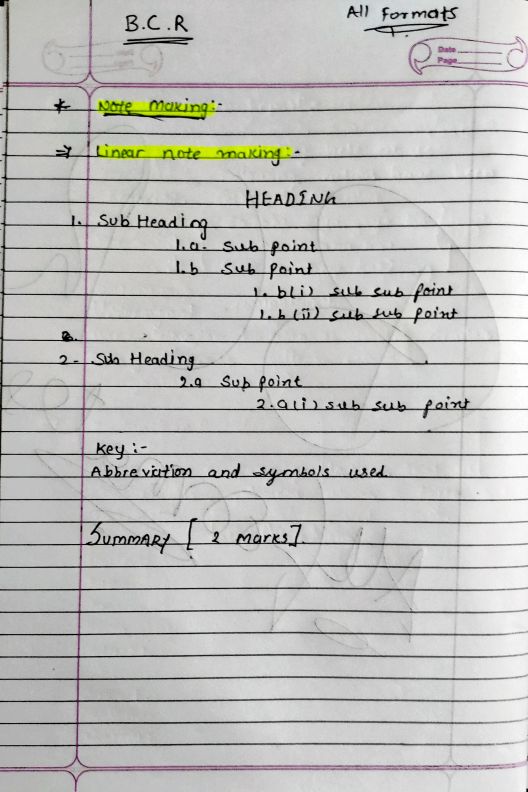 B.C.R
All formats
Date
Page
* Note Making:-
⇒ Linear note making:-
HEADING
1. Sub Heading
1.a- sub point
1.b sub point
1.b(i) sub sub point
1.b(ii) sub sub point
2- Sub Heading
2.a Sub point
2.a(i) sub sub point
Key :-
Abbreviation and symbols used
SUMMARY [2 marks].